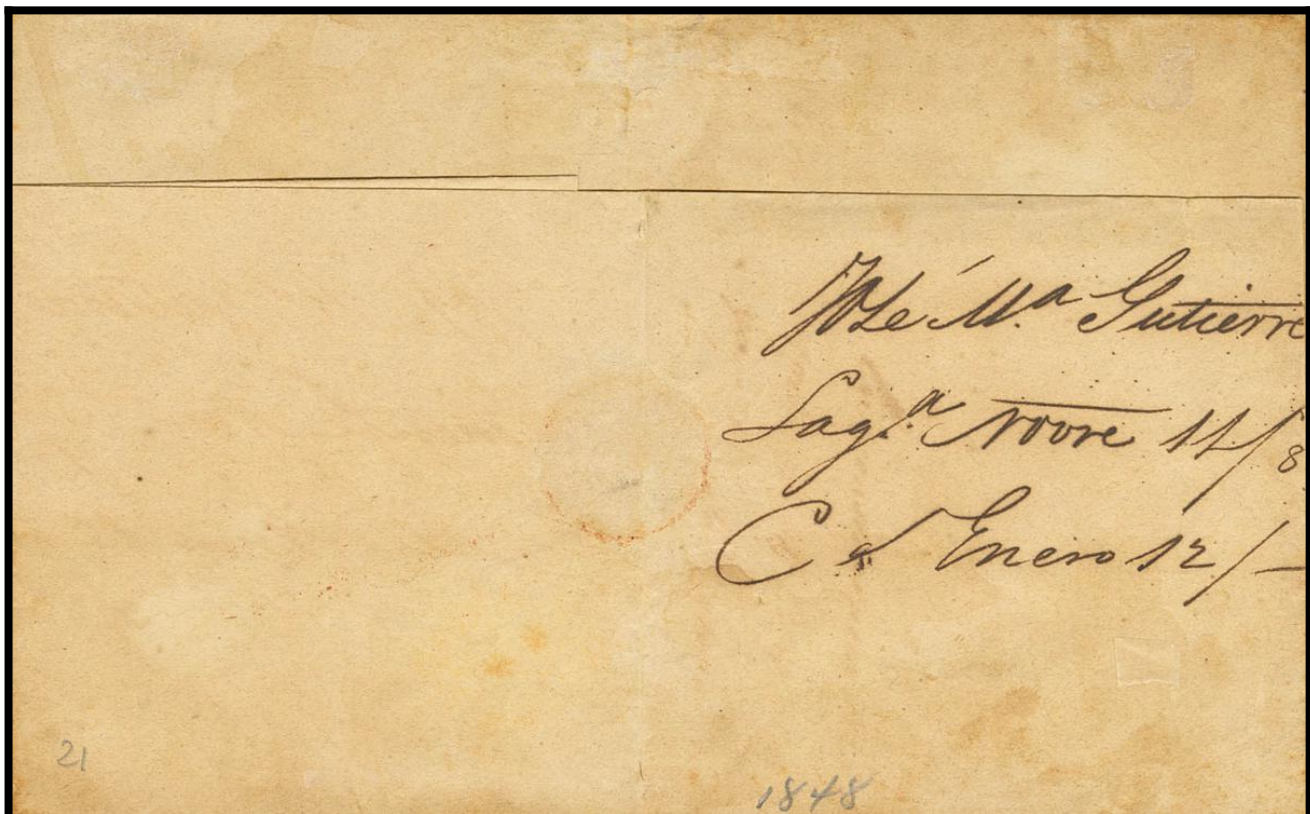 José M.ª Gutierre
Lag.ª Novre 11/8
C d Enero 12/-
21
1848